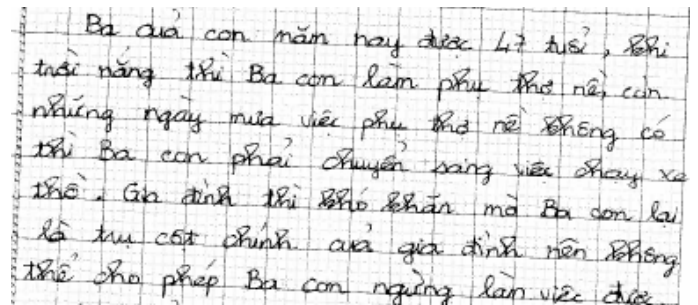 Ba của con năm nay được 47 tuổi, khi
trời nắng thì Ba con làm phụ thợ nề, còn
những ngày mưa việc phụ thợ nề không có
thì Ba con phải chuyển sang việc chạy xe
thồ. Gia đình thì khó khăn mà Ba con lại
là trụ cột chính của gia đình nên không
thể cho phép Ba con ngừng làm việc được